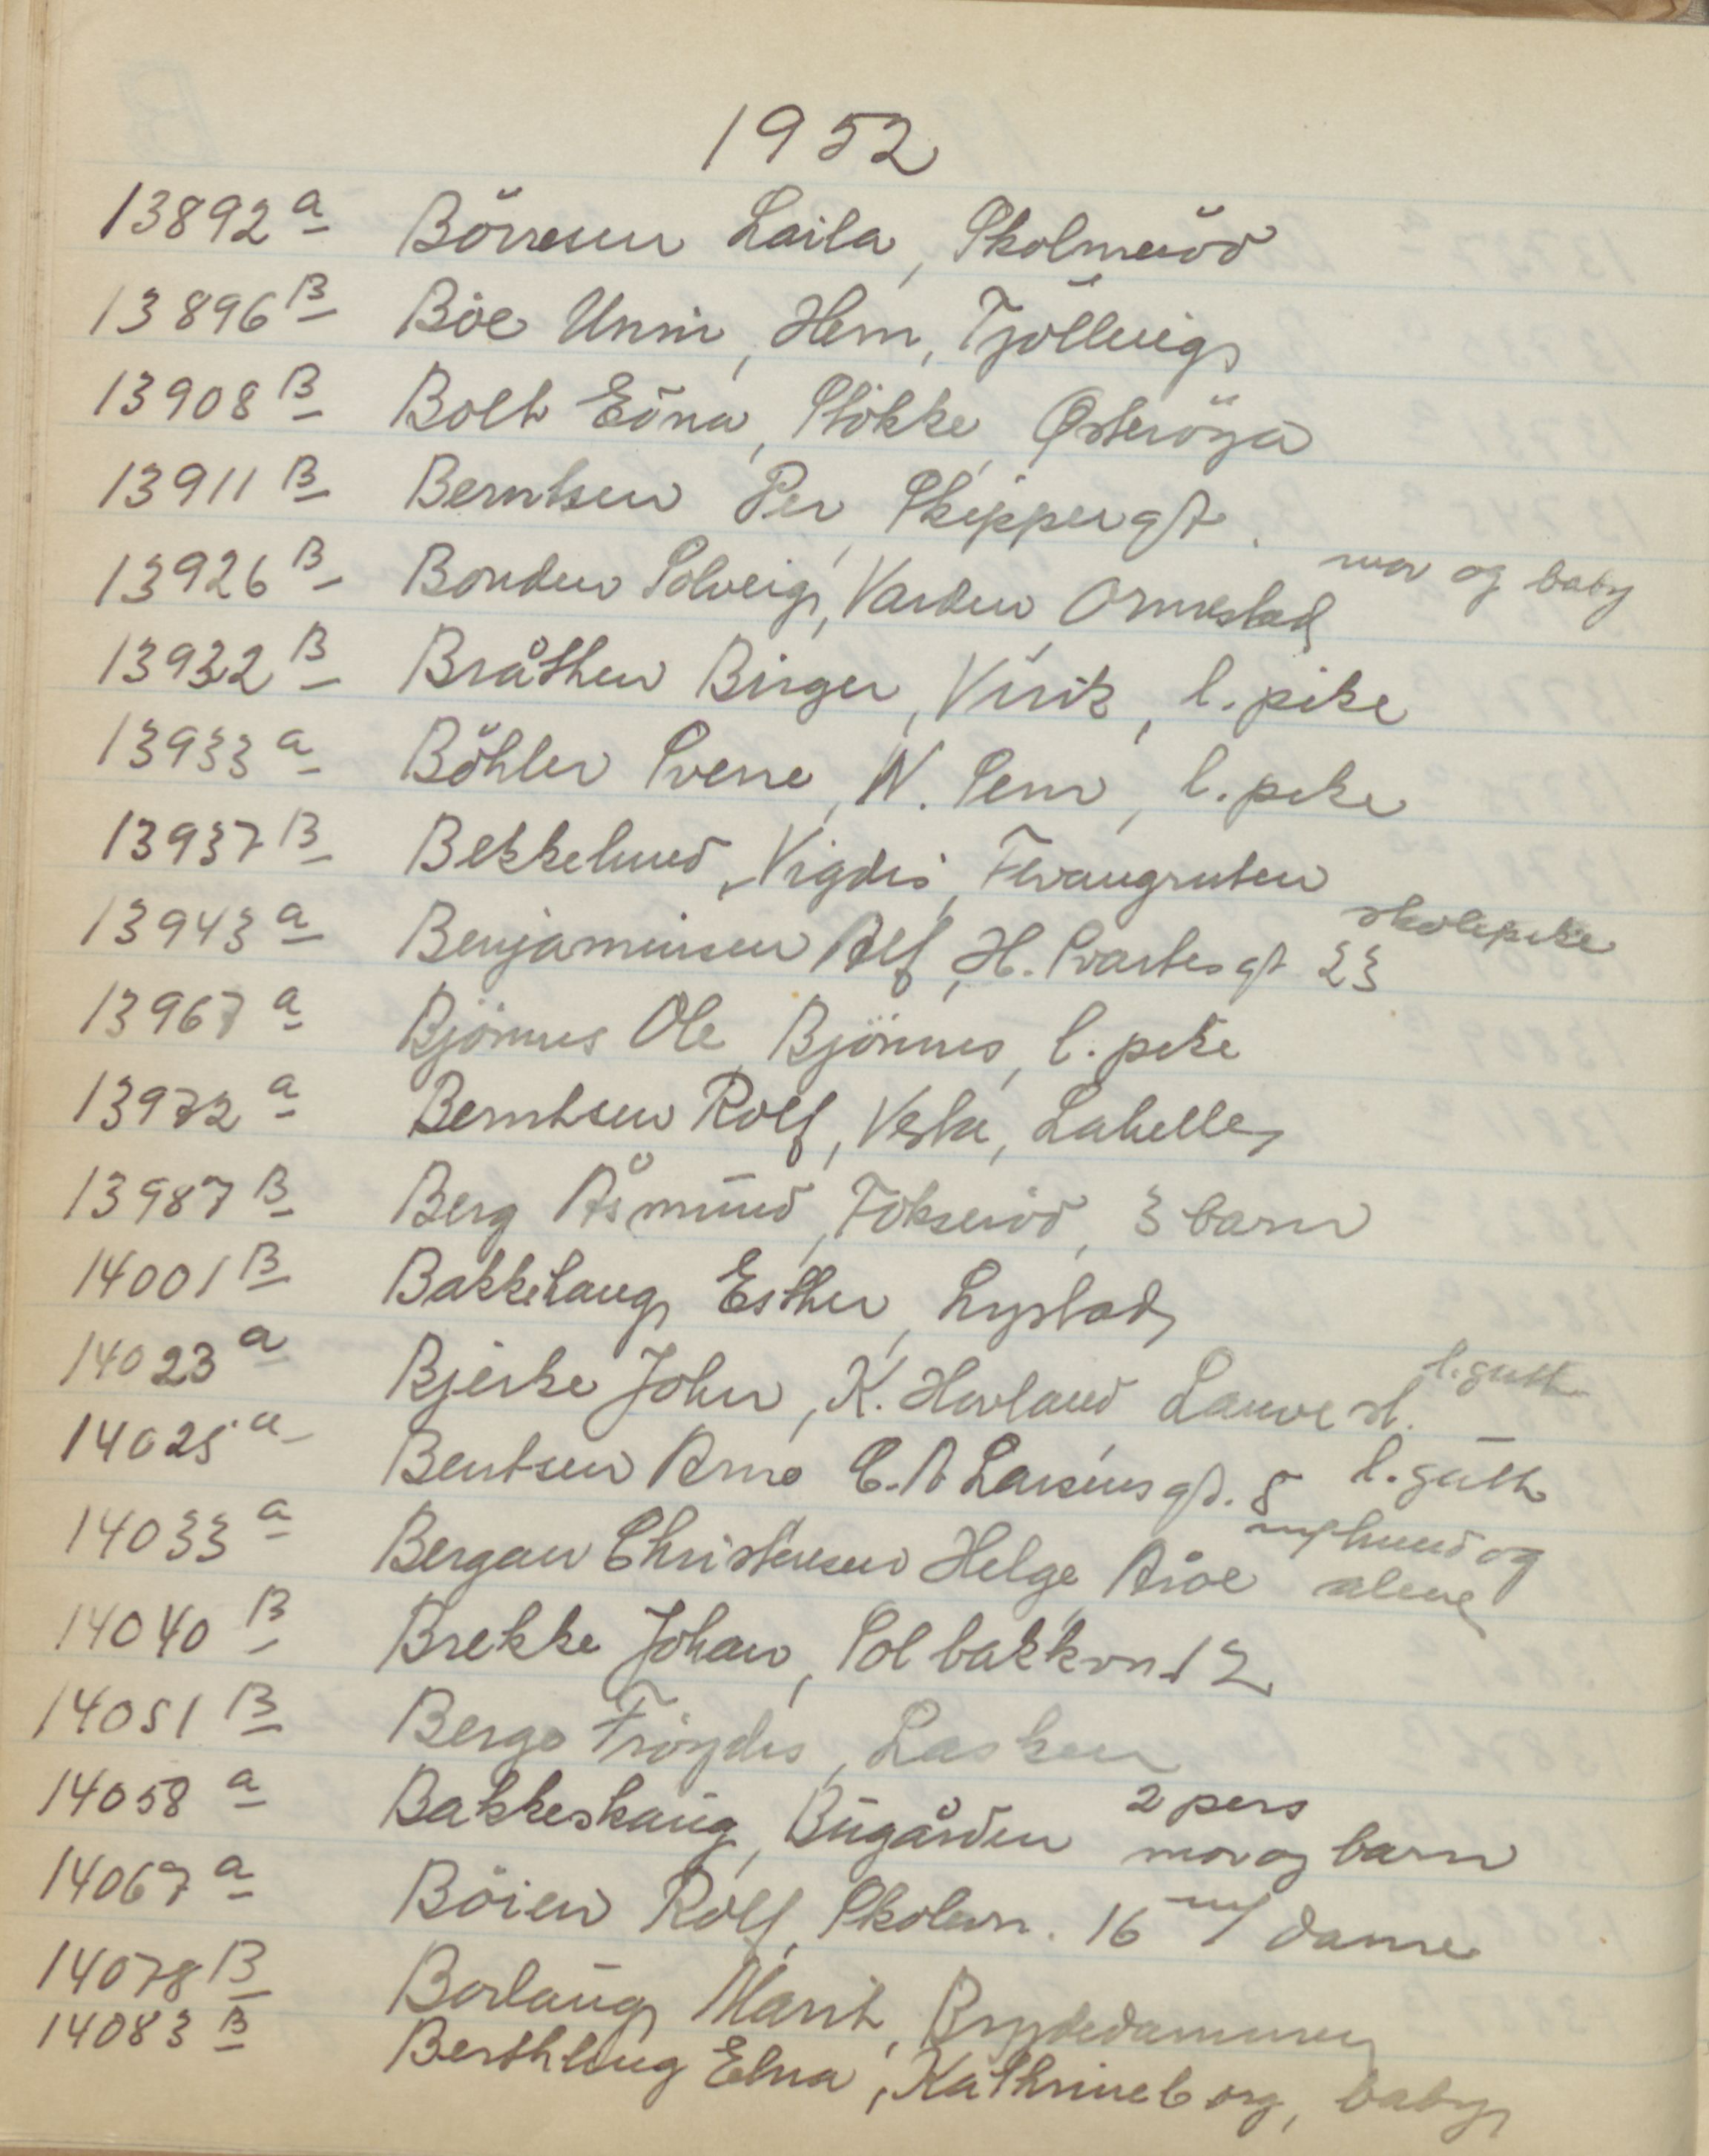 1952
13892 a Börresen Laila, Skolmeröd
13896 B Böe Unni, Hem, Tjöllingg
13908 B Bolt Edna, Stokke, Østeröya
13911 B Berntsen Per, Skippergt.
13926 B Bonden Solveig, Varden Ormestad mor og baby
13932 B Bråthen Birger, Virik, l. pike
13933 a Böhler Sverre, N. Sem, l. pike
13937 B Bekkelund, Vigdis, Fevangruten
13943 a Benjaminsen Alf, H. Svartes gt 23 skolepike
13967 a Bjönnes Ole, Bjönnes, l. pike
13972 a Berntsen Rolf, Vesta, Lahelle
13987 B Berg Åsmund, Fokseröd, 3 barn
14001 B Bakkehaug Esther, Lystad
14023 a Bjerke John, K. Hovland Lauve st. l. gutt
14025 a Bentsen Arne C. A Larsens gt. 8 l. gutt
14033 a Bergan Christensen Helge Aröe m/hund og alene
14040 B Brekke Johan, Solbakkvn 12
14051 B Berge Fröydis, Lasken
14058 a Bakkeskaug, Bugården 2 pers mor og barn
14067 a Böien Rolf, Skolevn. 16 m/ dame
14078 B Borlaug Marit, Brydedammen
14083 B Berthling Elna, Kathrineborg, baby